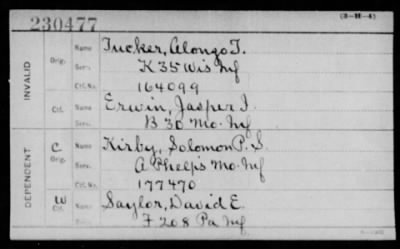 230477
(3-H-4)
INVALID
Orig.
Name Tucker, Alonzo T.
Serv. K 35 Wis Inf
Ctf.No. 164099
Ctf.
Name Erwin, Jasper I.
Serv. B 30 Mo. Inf
DEPENDENT
C
Orig.
Name Kirby, Solomon P. S.
Serv. A Phelp's Mo. Inf
Ctf.No. 177470
W
Ctf.
Name Saylor, David E.
Serv. F 208 Pa Inf